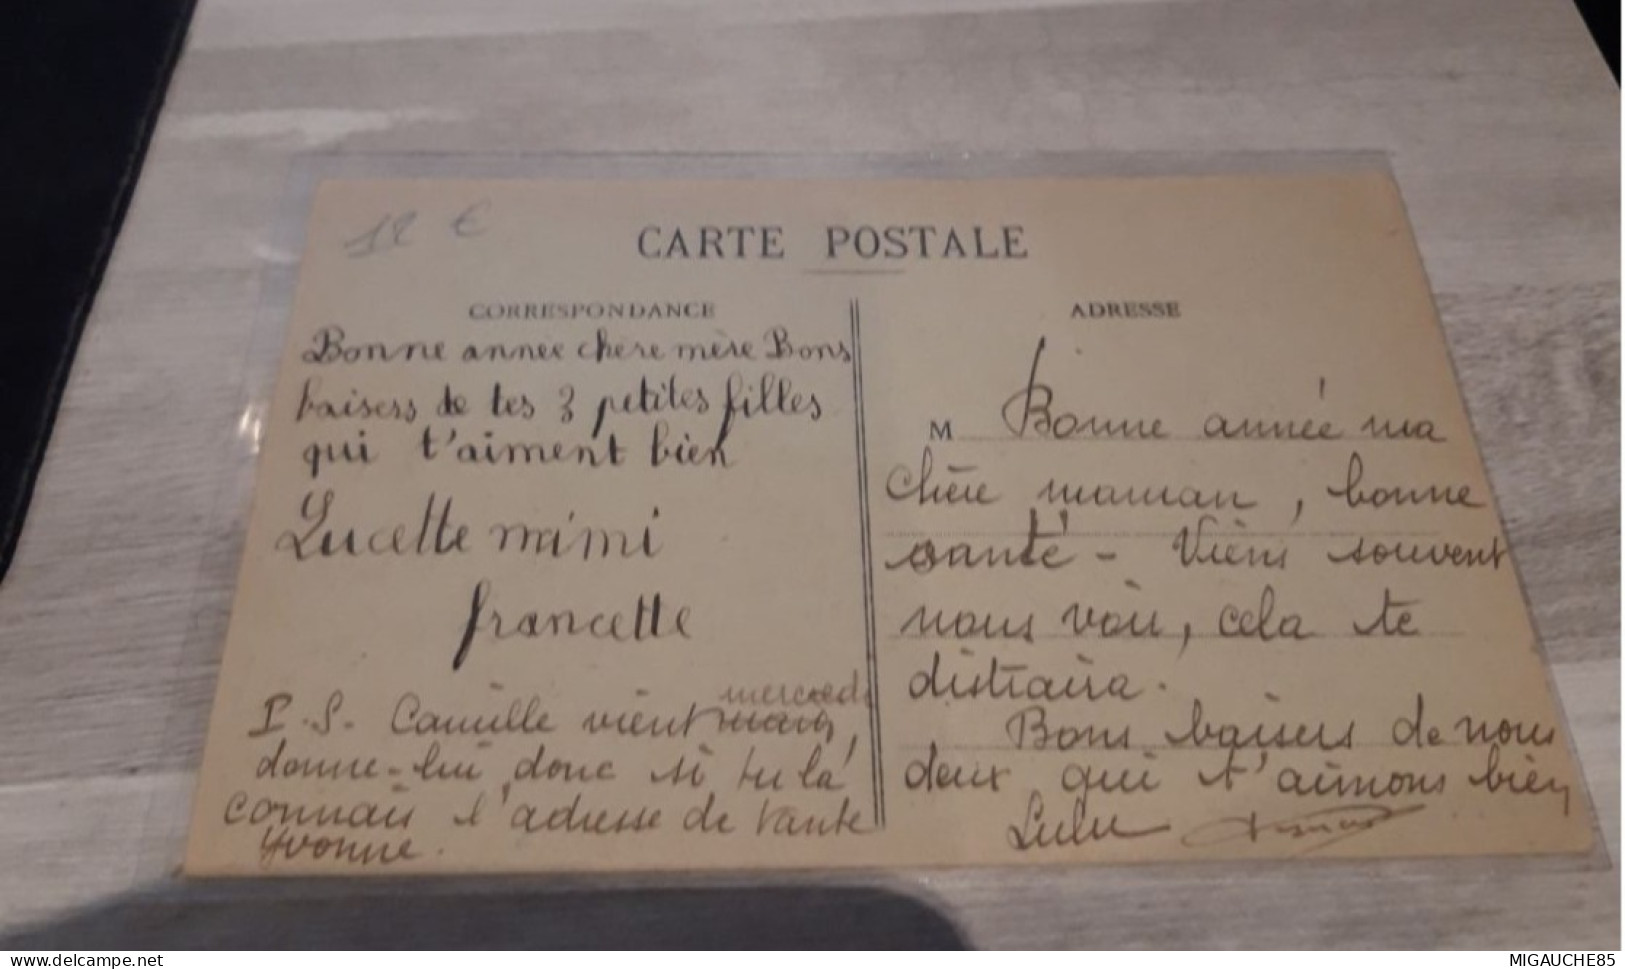 12 €
CARTE POSTALE
CORRESPONDANCE
Bonne année chere mère Bons
baisers de tes 3 petites filles
qui t'aiment bien
Lucette mimi
francette
P.S. Camille vient mercredi
donne-lui donc si tu la
connais l'adresse de tante
Yvonne.
ADRESSE
M Bonne année ma
chère maman, bonne
santé - Viens souvent
nous voir, cela te
distraira.
Bons baisers de nous
deux qui t'aimons bien
Lulu
delcampe.net
MIGAUCHE85